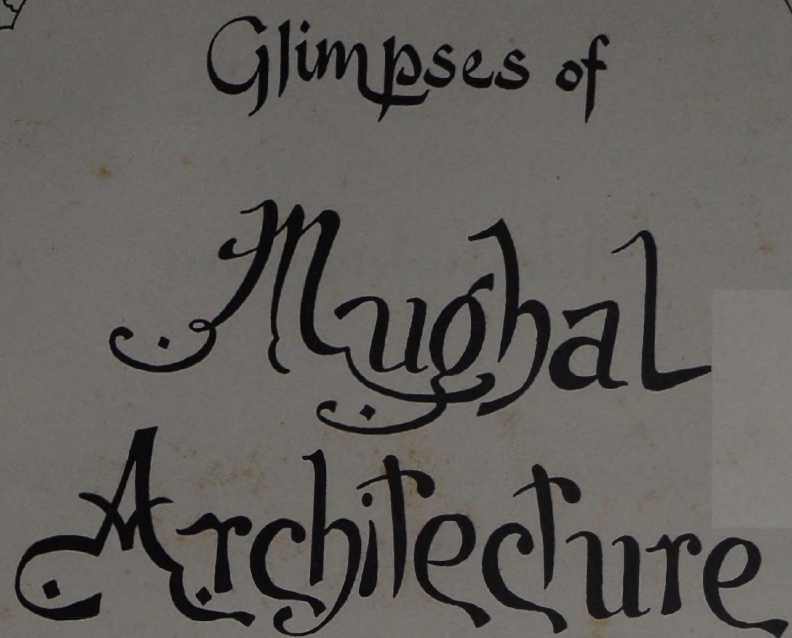 Glimpses of
Mughal
Architecture